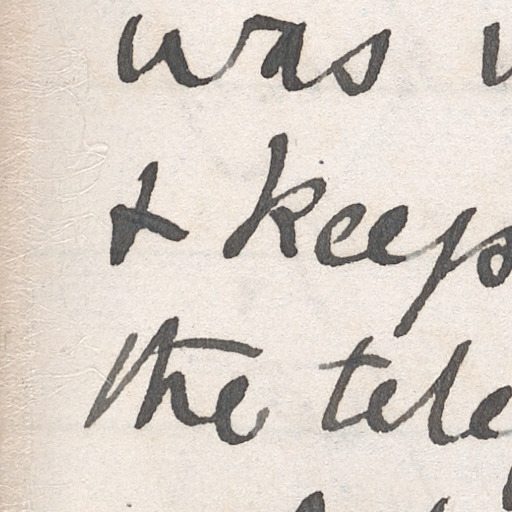 was
& keep
the tele